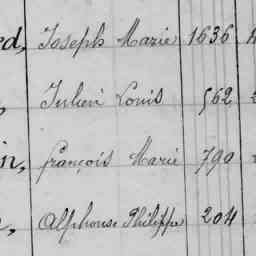 ed, Joseph Marie 1636
, Julien Louis 562
in, François Marie 790
, Alphonse Philippe 204